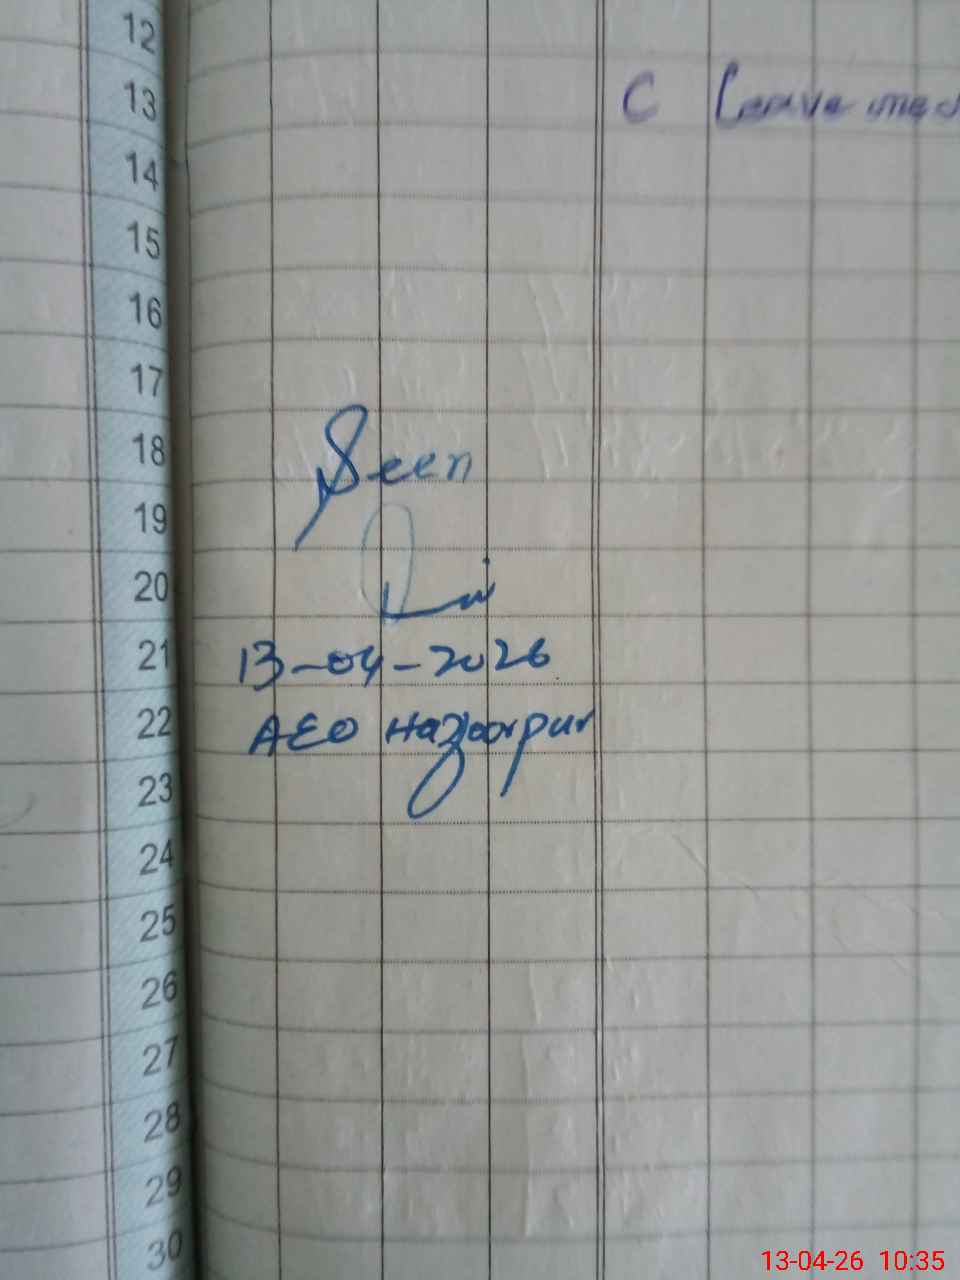 12
13
C Leave med
14
15
16
17
18
Seen
19
20
21
13-04-2026
22
AEO Hazoorpur
23
24
25
26
27
28
29
30
13-04-26 10:35